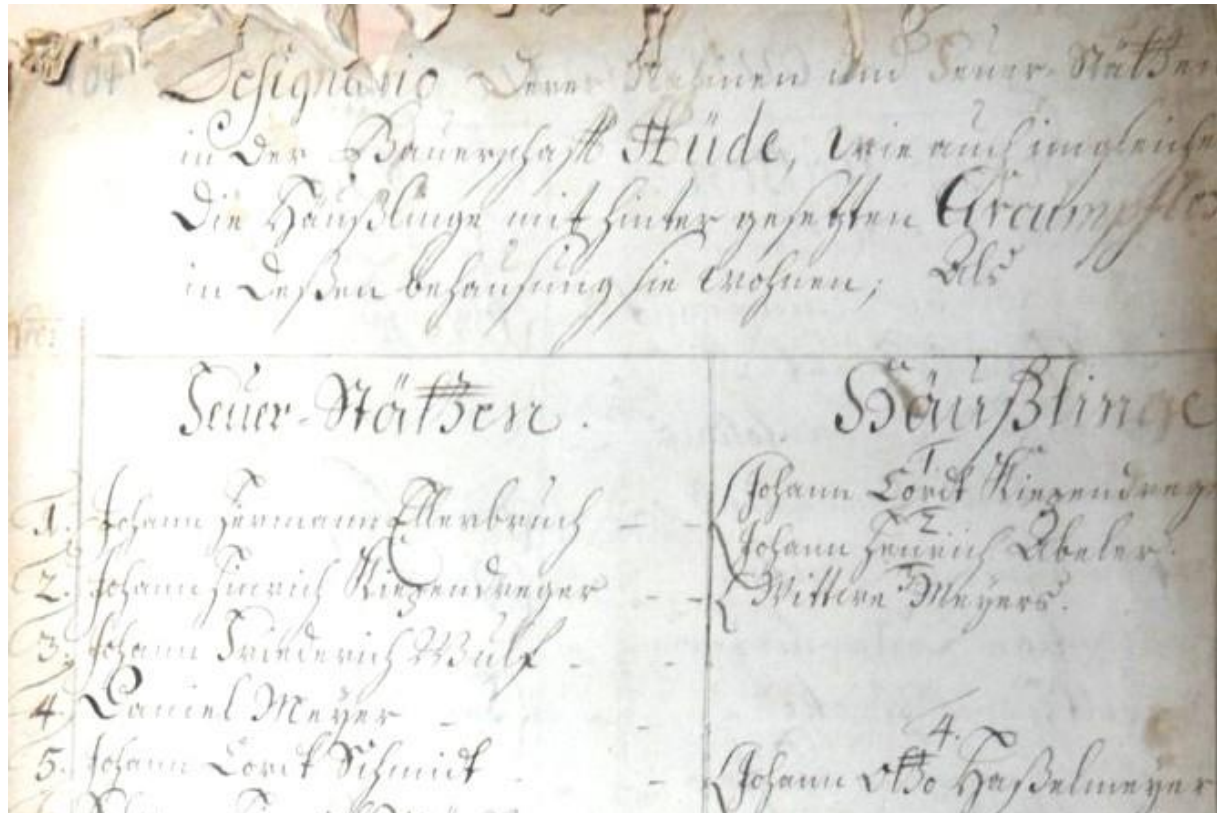 Designatio Derer Nahmen und Feuer-Stätten
in der Bauerschafft Hüde, wie auch imgleichen
die Häußlinge mit hinter gesetzten
in deßen behausung sie wohnen; Als
Feuer-Stätten. Häußlinge
1.
1. Johann Hermann Ellerbruch - - Johann Cordt Kiezendreger
2.
Johann Henrich Abeler.
2. Johann Hinrich Kiezendreger - - Wittwe Meyers.
3. Johann Friederich Wulf - -
4. Daniel Meyer - -
4.
5. Johann Cordt Schmidt - - Johann Otto Haßelmeyer